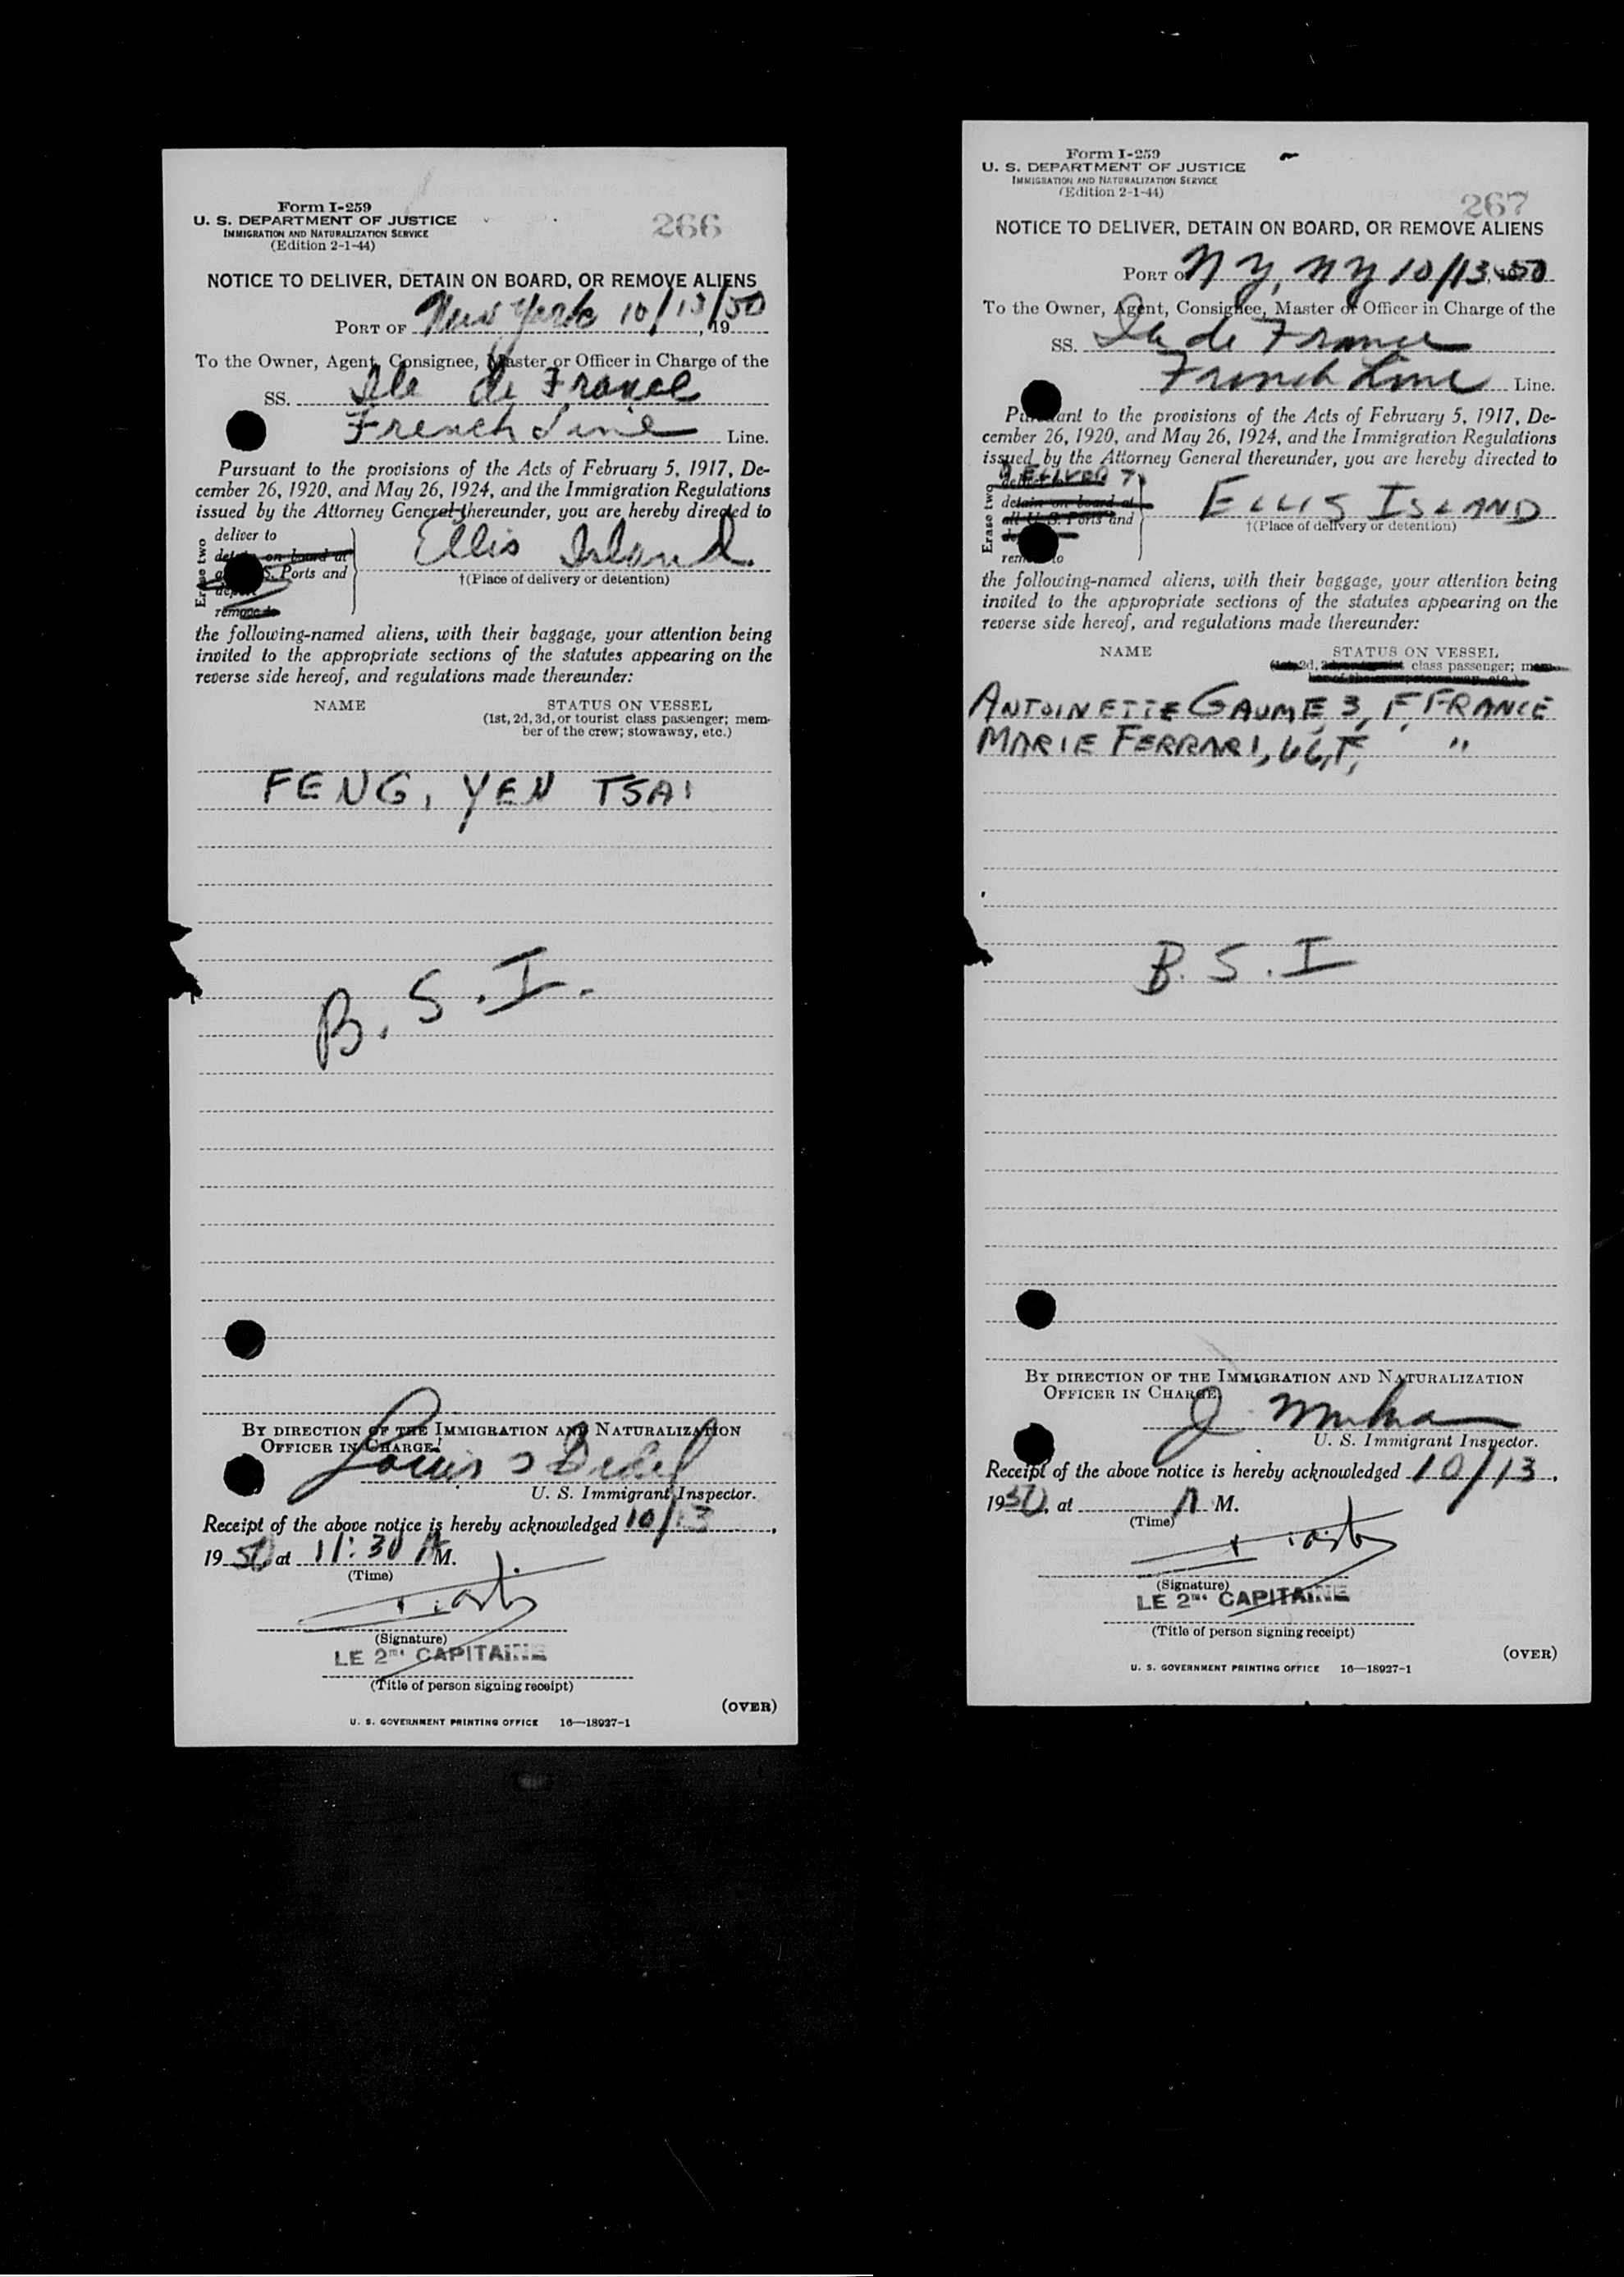 Form I-259
U. S. DEPARTMENT OF JUSTICE
IMMIGRATION AND NATURALIZATION SERVICE
(Edition 2-1-44)
266
NOTICE TO DELIVER, DETAIN ON BOARD, OR REMOVE ALIENS
PORT OF New York 10/13/50, 19
To the Owner, Agent, Consignee, Master or Officer in Charge of the
SS. Ile de France
French Line Line.
Pursuant to the provisions of the Acts of February 5, 1917, De-
cember 26, 1920, and May 26, 1924, and the Immigration Regulations
issued by the Attorney General thereunder, you are hereby directed to
Erase two
deliver to
detain on board at
S. Ports and
deport
remove to
Ellis Island
†(Place of delivery or detention)
the following-named aliens, with their baggage, your attention being
invited to the appropriate sections of the statutes appearing on the
reverse side hereof, and regulations made thereunder:
NAME STATUS ON VESSEL
(1st, 2d, 3d, or tourist class passenger; mem-
ber of the crew; stowaway, etc.)
FENG, YEN TSAI
B. S. I.
BY DIRECTION OF THE IMMIGRATION AND NATURALIZATION
OFFICER IN CHARGE:
Louis
U. S. Immigrant Inspector.
Receipt of the above notice is hereby acknowledged 10/13,
1950, at 11:30 A M.
(Time)
(Signature)
LE 2me CAPITAINE
(Title of person signing receipt)
(OVER)
U. S. GOVERNMENT PRINTING OFFICE 16—18927-1
Form I-259
U. S. DEPARTMENT OF JUSTICE
IMMIGRATION AND NATURALIZATION SERVICE
(Edition 2-1-44)
267
NOTICE TO DELIVER, DETAIN ON BOARD, OR REMOVE ALIENS
PORT OF NY, NY 10/13, 1950
To the Owner, Agent, Consignee, Master or Officer in Charge of the
SS. Ile de France
French Line Line.
Pursuant to the provisions of the Acts of February 5, 1917, De-
cember 26, 1920, and May 26, 1924, and the Immigration Regulations
issued by the Attorney General thereunder, you are hereby directed to
Erase two
DELIVER
detain on board at
all U. S. Ports and
remove to
ELLIS ISLAND
†(Place of delivery or detention)
the following-named aliens, with their baggage, your attention being
invited to the appropriate sections of the statutes appearing on the
reverse side hereof, and regulations made thereunder:
NAME STATUS ON VESSEL
(1st, 2d, 3d, or tourist class passenger; mem-
ber of the crew; stowaway, etc.)
ANTOINETTE GAUME, 3, F, FRANCE
MARIE FERRARI, 66, F, "
B. S. I
BY DIRECTION OF THE IMMIGRATION AND NATURALIZATION
OFFICER IN CHARGE:
J.
U. S. Immigrant Inspector.
Receipt of the above notice is hereby acknowledged 10/13,
1950, at A M.
(Time)
(Signature)
LE 2me CAPITAINE
(Title of person signing receipt)
(OVER)
U. S. GOVERNMENT PRINTING OFFICE 16—18927-1